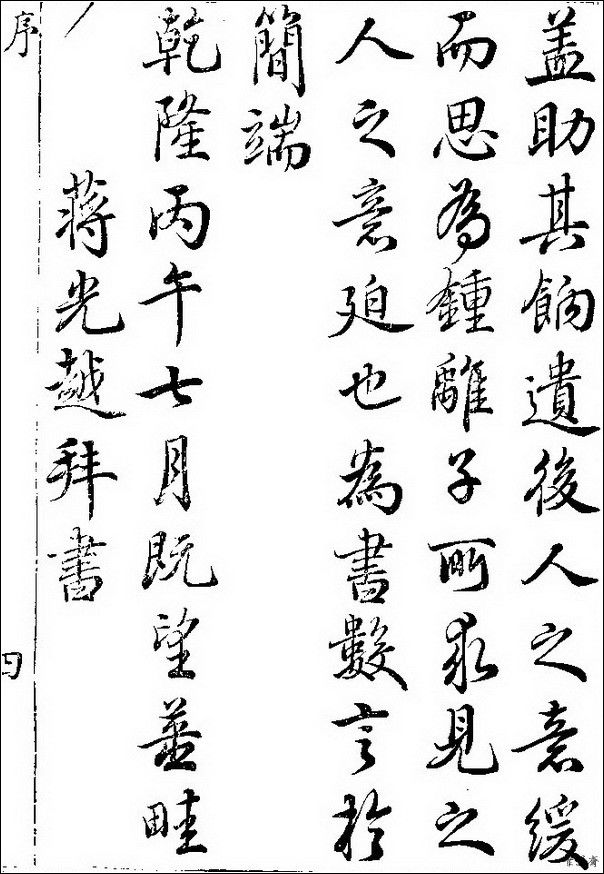 盖助其餉遺後人之意緩
而思為鍾離子所求見之
人之意廹也為書數言於
簡端
乾隆丙午七月既望畦
蔣光越拜書
序